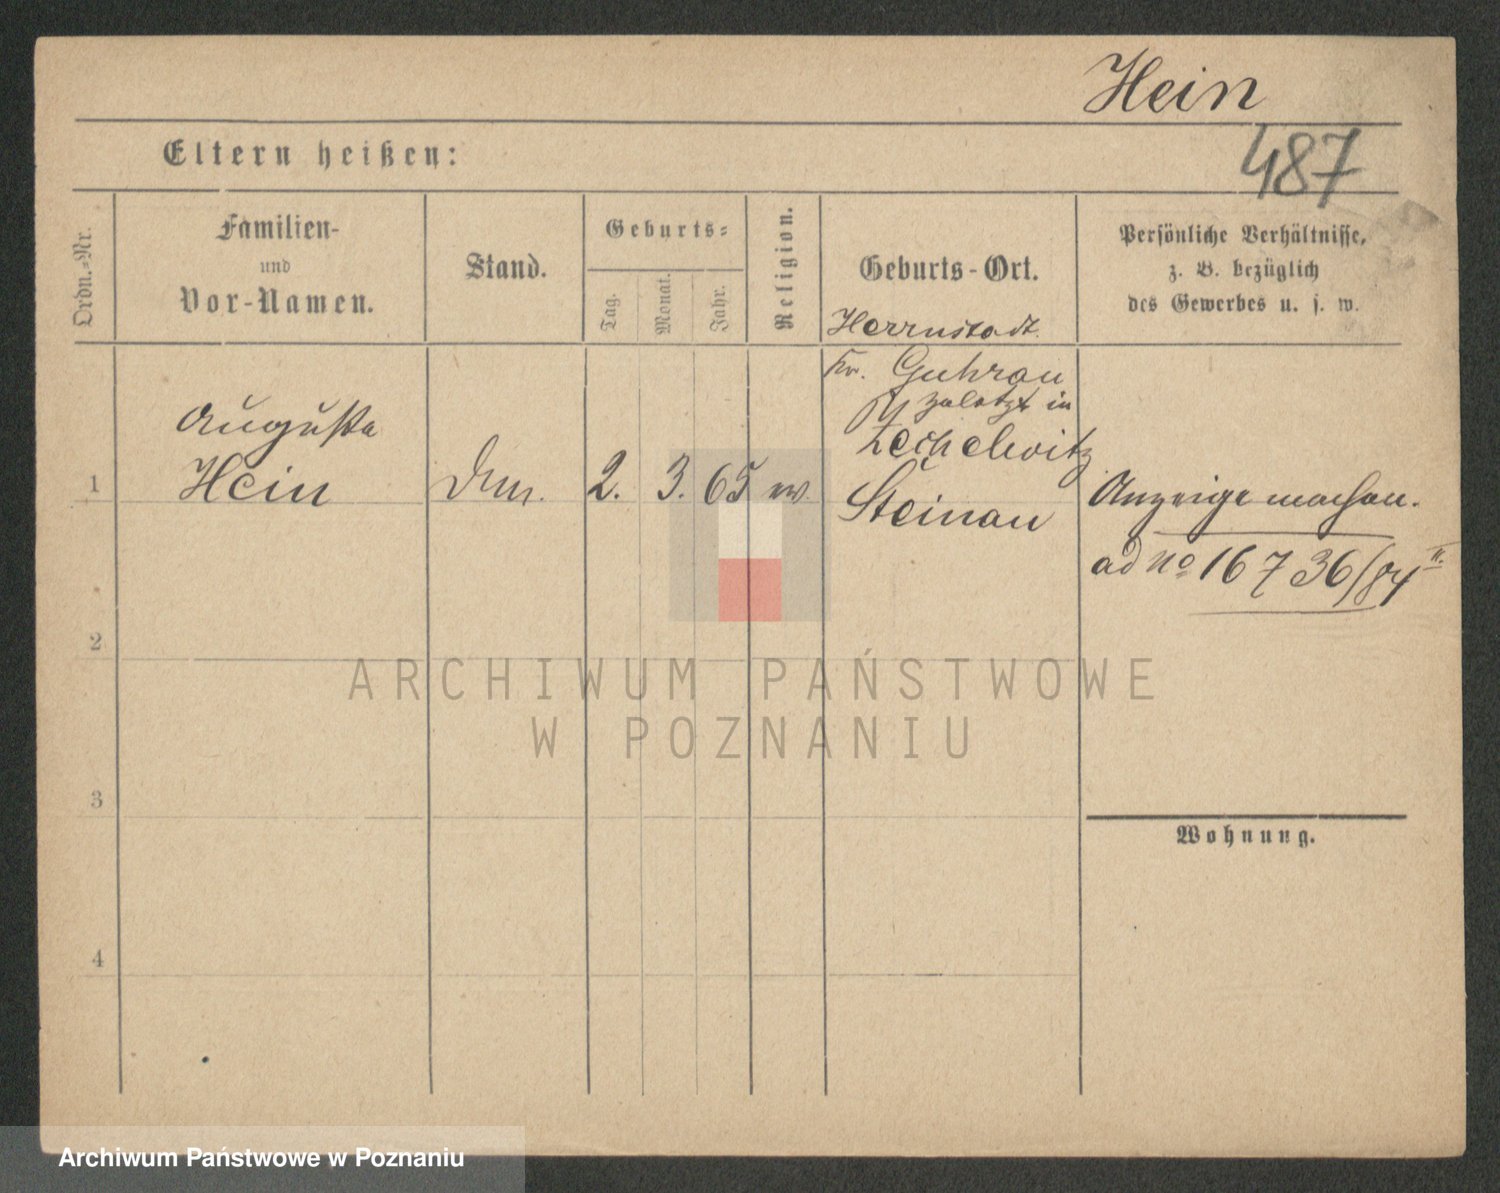 Hein
487
Eltern heißen:
Ordn.-Nr.
Familien-
und
Vor-Namen.
Stand.
Geburts-
Tag.
Monat.
Jahr.
Religion.
Geburts-Ort.
Persönliche Verhältnisse,
z. B. bezüglich
des Gewerbes u. s. w.
Herrnstadt
Kr. Guhrau
zuletzt in
Auguste
1 Hein
2. 3. 65 ev
Steinau
Anzeige machen.
ad No 16736/84 II.
2
3
Wohnung.
4
ARCHIWUM PAŃSTWOWE
W POZNANIU
Archiwum Państwowe w Poznaniu